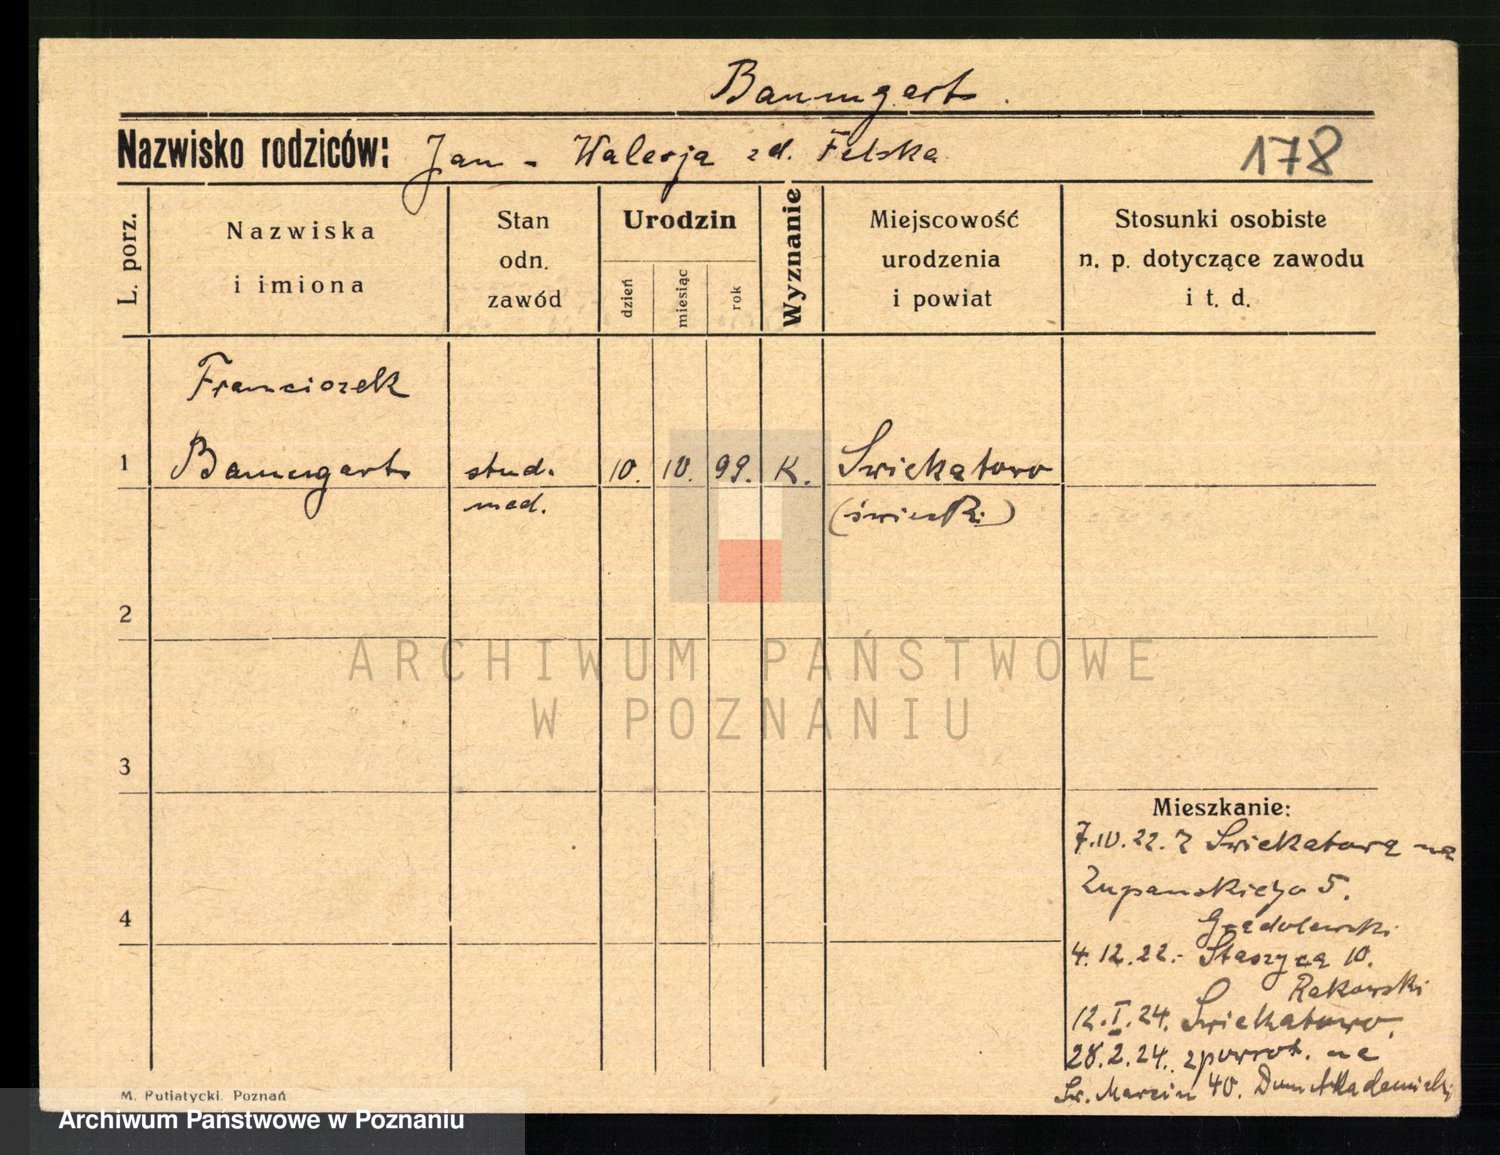 Baumgart
Nazwisko rodziców: Jan - Walerja zd. Felska
178
L. porz.
Nazwiska
i imiona
Stan
odn.
zawód
Urodzin
dzień
miesiąc
rok
Wyznanie
Miejscowość
urodzenia
i powiat
Stosunki osobiste
n. p. dotyczące zawodu
i t. d.
Franciszek
1 Baumgart stud. 10. 10. 99. K. Swiekatowo
med. (świecki)
2
3
4
Mieszkanie:
7.10.22. z Swiekatowa na
Żupanskiego 5.
Grędolewski
4.12.22.- Staszyca 10.
Rakowski
12.I.24. Swiekatowo.
28.2.24. zpowrot. na
Św. Marcin 40. Dom Akademicki
M. Putiatycki. Poznań
ARCHIWUM PAŃSTWOWE
W POZNANIU
Archiwum Państwowe w Poznaniu